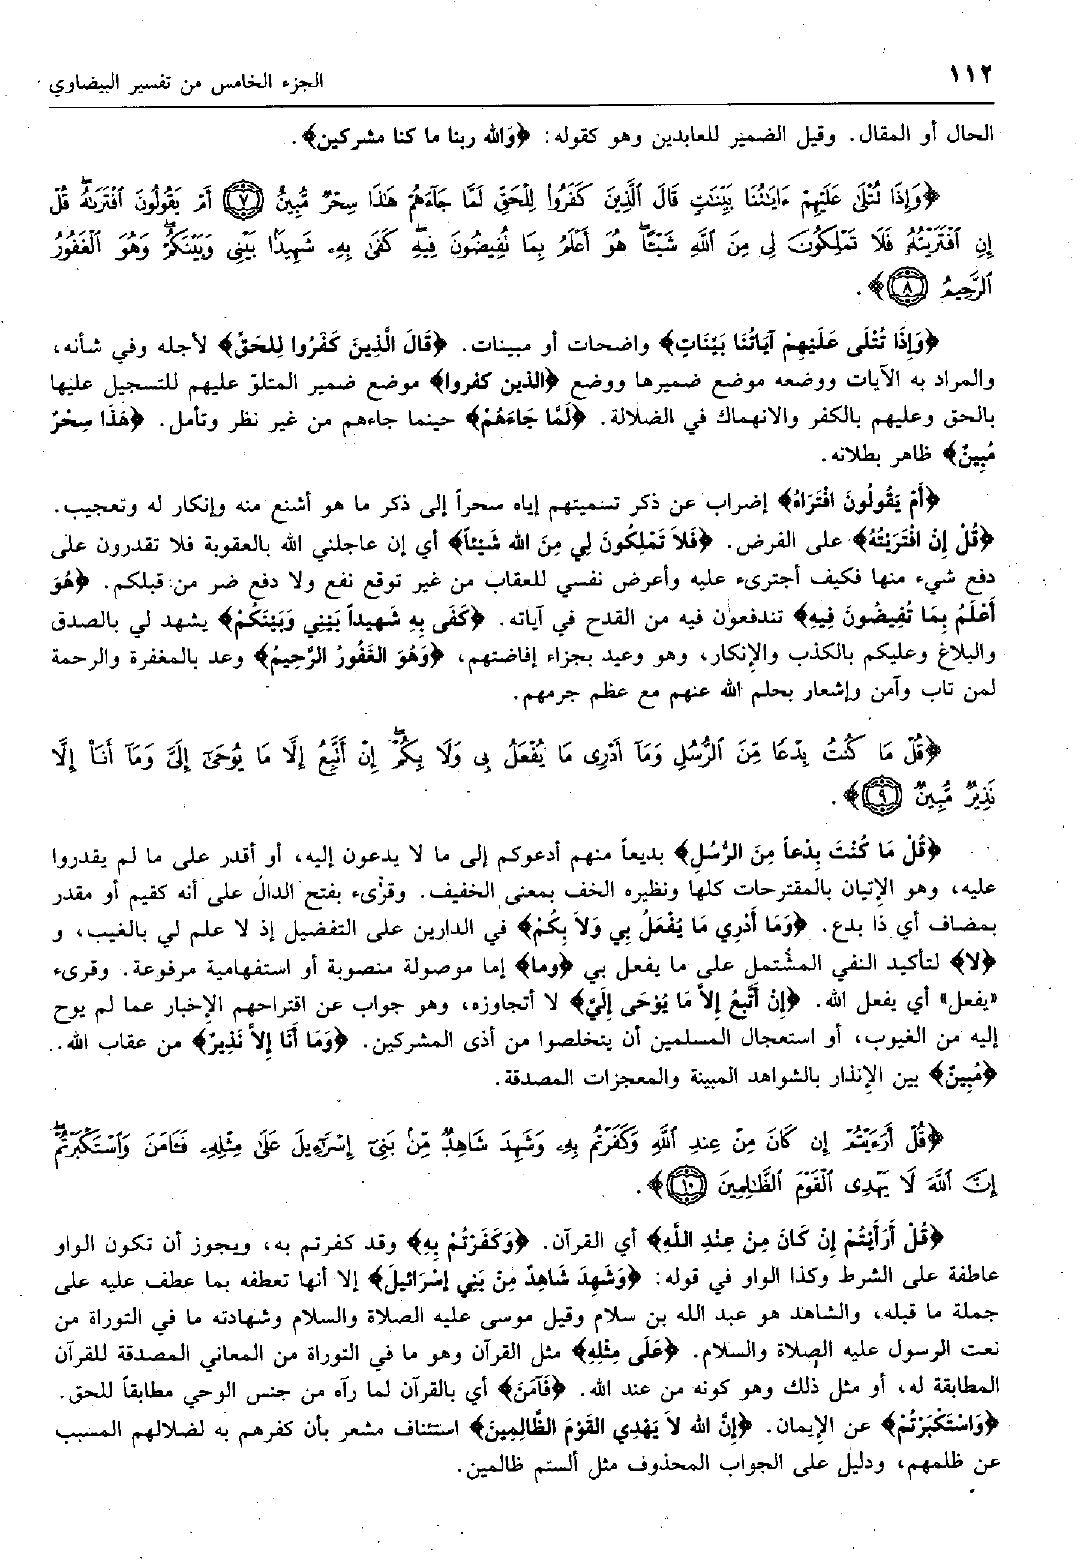 ١١٢
الجزء الخامس من تفسير البيضاوي
الحال أو المقال. وقيل الضمير للعابدين وهو كقوله: ﴿والله ربنا ما كنا مشركين﴾.
﴿وَإِذَا تُتْلَىٰ عَلَيْهِمْ ءَايَٰتُنَا بَيِّنَٰتٍ قَالَ ٱلَّذِينَ كَفَرُوا۟ لِلْحَقِّ لَمَّا جَآءَهُمْ هَٰذَا سِحْرٌ مُّبِينٌ ٧ أَمْ يَقُولُونَ ٱفْتَرَىٰهُ ۖ قُلْ
إِنِ ٱفْتَرَيْتُهُۥ فَلَا تَمْلِكُونَ لِى مِنَ ٱللَّهِ شَيْـًٔا ۖ هُوَ أَعْلَمُ بِمَا تُفِيضُونَ فِيهِ ۖ كَفَىٰ بِهِۦ شَهِيدًۢا بَيْنِى وَبَيْنَكُمْ ۖ وَهُوَ ٱلْغَفُورُ
ٱلرَّحِيمُ ٨﴾.
﴿وَإِذَا تُتْلَى عَلَيْهِمْ آيَاتُنَا بَيِّنَاتٍ﴾ واضحات أو مبينات. ﴿قَالَ الَّذِينَ كَفَرُوا لِلحَقِّ﴾ لأجله وفي شأنه،
والمراد به الآيات ووضعه موضع ضميرها ووضع ﴿الذين كفروا﴾ موضع ضمير المتلوّ عليهم للتسجيل عليها
بالحق وعليهم بالكفر والانهماك في الضلالة. ﴿لَمَّا جَاءَهُمْ﴾ حينما جاءهم من غير نظر وتأمل. ﴿هَذَا سِحْرٌ
مُبِينٌ﴾ ظاهر بطلانه.
﴿أَمْ يَقُولُونَ افْتَرَاهُ﴾ إضراب عن ذكر تسميتهم إياه سحراً إلى ذكر ما هو أشنع منه وإنكار له وتعجيب.
﴿قُلْ إِنْ افْتَرَيْتُهُ﴾ على الفرض. ﴿فَلاَ تَمْلِكُونَ لِي مِنَ الله شَيْئاً﴾ أي إن عاجلني الله بالعقوبة فلا تقدرون على
دفع شيء منها فكيف أجترىء عليه وأعرض نفسي للعقاب من غير توقع نفع ولا دفع ضر من قبلكم. ﴿هُوَ
أَعْلَمُ بِمَا تُفِيضُونَ فِيهِ﴾ تندفعون فيه من القدح في آياته. ﴿كَفَى بِهِ شَهِيداً بَيْنِي وَبَيْنَكُمْ﴾ يشهد لي بالصدق
والبلاغ وعليكم بالكذب والإنكار، وهو وعيد بجزاء إفاضتهم، ﴿وَهُوَ الغَفُورُ الرَّحِيمُ﴾ وعد بالمغفرة والرحمة
لمن تاب وآمن وإشعار بحلم الله عنهم مع عظم جرمهم.
﴿قُلْ مَا كُنتُ بِدْعًا مِّنَ ٱلرُّسُلِ وَمَآ أَدْرِى مَا يُفْعَلُ بِى وَلَا بِكُمْ ۖ إِنْ أَتَّبِعُ إِلَّا مَا يُوحَىٰٓ إِلَىَّ وَمَآ أَنَا۠ إِلَّا
نَذِيرٌ مُّبِينٌ ٩﴾.
﴿قُلْ مَا كُنْتَ بِدْعاً مِنَ الرُّسُلِ﴾ بديعاً منهم أدعوكم إلى ما لا يدعون إليه، أو أقدر على ما لم يقدروا
عليه، وهو الإتيان بالمقترحات كلها ونظيره الخف بمعنى الخفيف. وقرىء بفتح الدال على أنه كقيم أو مقدر
بمضاف أي ذا بدع. ﴿وَمَا أَدْرِي مَا يُفْعَلُ بِي وَلاَ بِكُمْ﴾ في الدارين على التفضيل إذ لا علم لي بالغيب، و
﴿لا﴾ لتأكيد النفي المشتمل على ما يفعل بي ﴿وما﴾ إما موصولة منصوبة أو استفهامية مرفوعة. وقرىء
«يفعل» أي يفعل الله. ﴿إِنْ أَتَّبِعُ إِلاَّ مَا يُوْحَى إِلَيَّ﴾ لا أتجاوزه، وهو جواب عن اقتراحهم الإخبار عما لم يوح
إليه من الغيوب، أو استعجال المسلمين أن يتخلصوا من أذى المشركين. ﴿وَمَا أَنَا إِلاَّ نَذِيرٌ﴾ من عقاب الله..
﴿مُبِينٌ﴾ بين الإنذار بالشواهد المبينة والمعجزات المصدقة.
﴿قُلْ أَرَءَيْتُمْ إِن كَانَ مِنْ عِندِ ٱللَّهِ وَكَفَرْتُم بِهِۦ وَشَهِدَ شَاهِدٌ مِّنۢ بَنِىٓ إِسْرَٰٓءِيلَ عَلَىٰ مِثْلِهِۦ فَـَٔامَنَ وَٱسْتَكْبَرْتُمْ ۖ
إِنَّ ٱللَّهَ لَا يَهْدِى ٱلْقَوْمَ ٱلظَّٰلِمِينَ ١٠﴾.
﴿قُلْ أَرَأَيْتُمْ إِن كَانَ مِنْ عِنْدِ اللَّهِ﴾ أي القرآن. ﴿وَكَفَرْتُمْ بِهِ﴾ وقد كفرتم به، ويجوز أن تكون الواو
عاطفة على الشرط وكذا الواو في قوله: ﴿وَشَهِدَ شَاهِدٌ مِنْ بَنِي إِسْرَائيلَ﴾ إلا أنها تعطفه بما عطف عليه على
جملة ما قبله، والشاهد هو عبد الله بن سلام وقيل موسى عليه الصلاة والسلام وشهادته ما في التوراة من
نعت الرسول عليه الصلاة والسلام. ﴿عَلَى مِثْلِهِ﴾ مثل القرآن وهو ما في التوراة من المعاني المصدقة للقرآن
المطابقة له، أو مثل ذلك وهو كونه من عند الله. ﴿فَآمَنَ﴾ أي بالقرآن لما رآه من جنس الوحي مطابقاً للحق.
﴿وَاسْتَكْبَرْتُمْ﴾ عن الإيمان. ﴿إِنَّ الله لاَ يَهْدِي القَوْمَ الظَّالِمِينَ﴾ استئناف مشعر بأن كفرهم به لضلالهم المسبب
عن ظلمهم، ودليل على الجواب المحذوف مثل ألستم ظالمين.